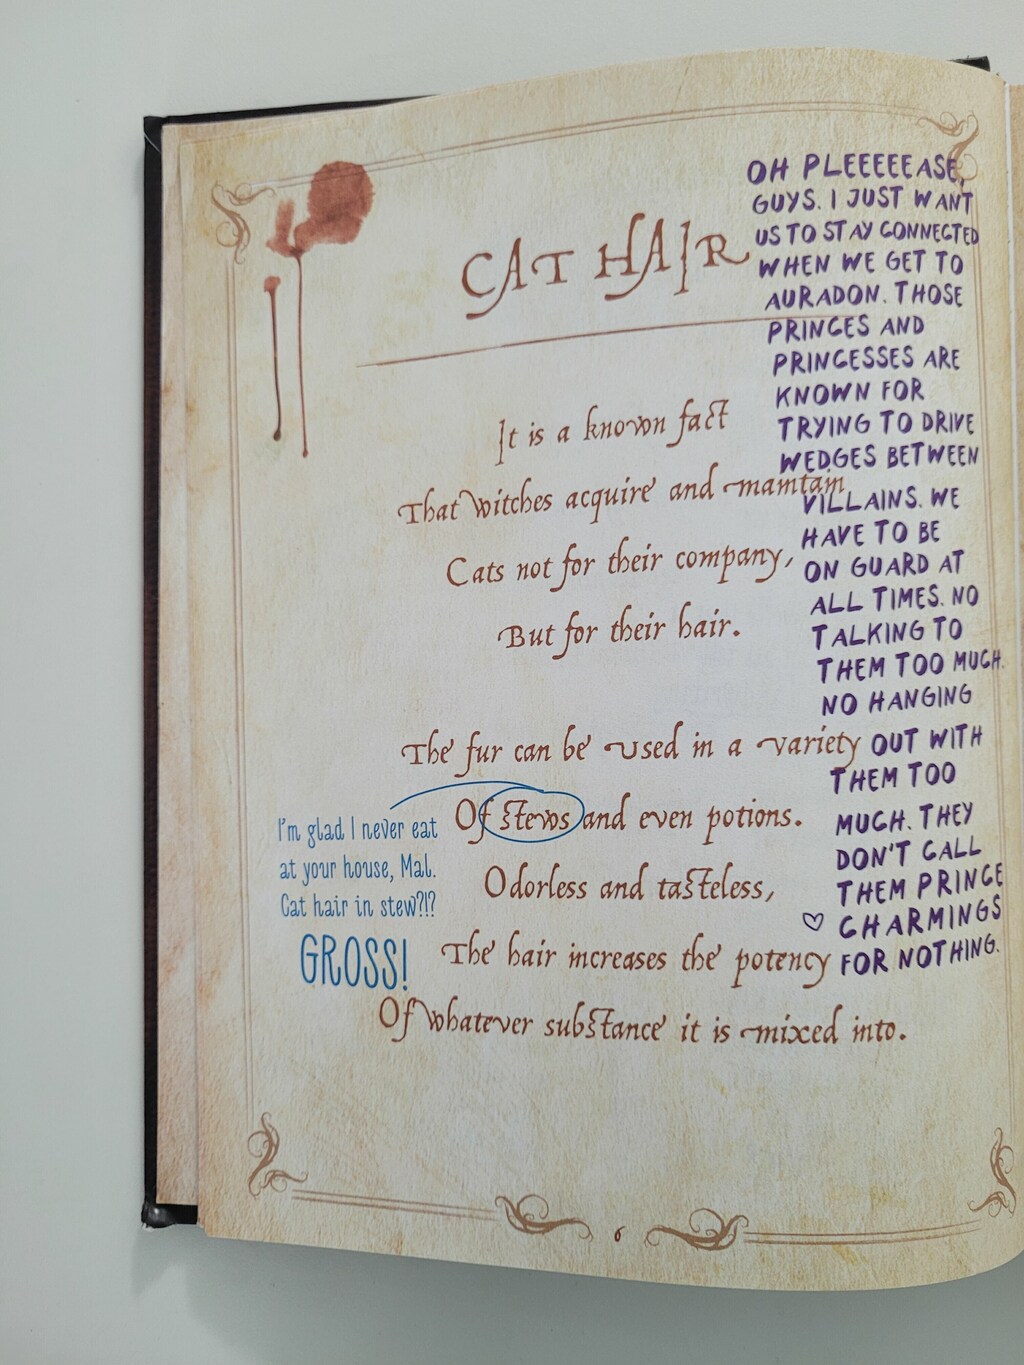 CAT HAIR
It is a known fact
That witches acquire and maintain
Cats not for their company,
But for their hair.
The fur can be used in a variety
Of stews and even potions.
Odorless and tasteless,
The hair increases the potency
Of whatever substance it is mixed into.
I'm glad I never eat
at your house, Mal.
Cat hair in stew?!?
GROSS!
OH PLEEEEEASE,
GUYS. I JUST WANT
US TO STAY CONNECTED
WHEN WE GET TO
AURADON. THOSE
PRINCES AND
PRINCESSES ARE
KNOWN FOR
TRYING TO DRIVE
WEDGES BETWEEN
VILLAINS. WE
HAVE TO BE
ON GUARD AT
ALL TIMES. NO
TALKING TO
THEM TOO MUCH.
NO HANGING
OUT WITH
THEM TOO
MUCH. THEY
DON'T CALL
THEM PRINCE
CHARMINGS
FOR NOTHING.
6